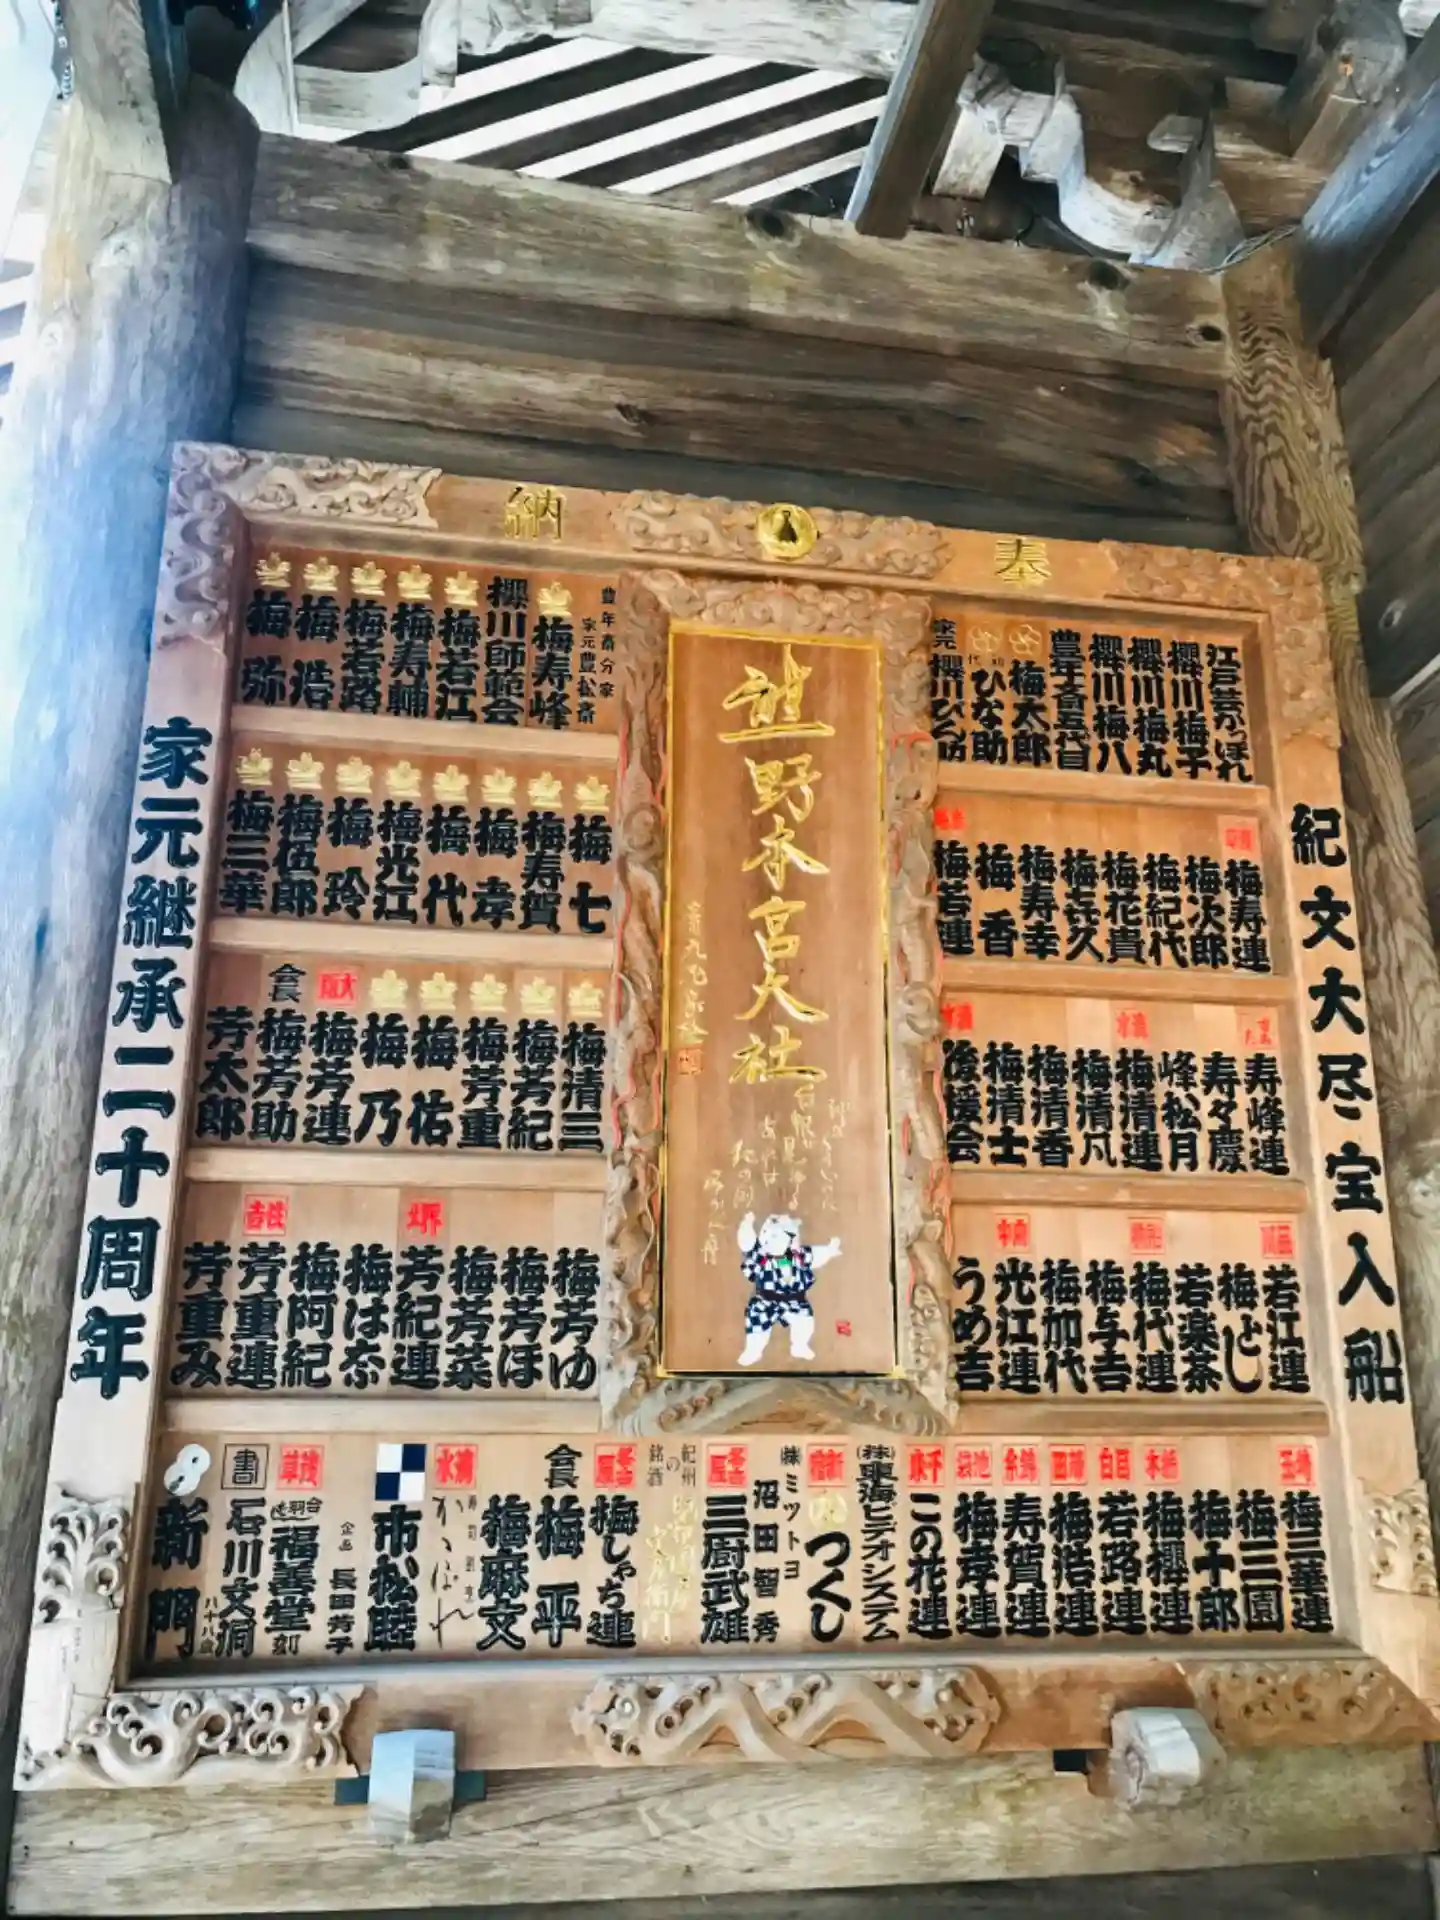 奉
納
紀文大尽宝入船
熊野本宮大社
江戸芸かっぽれ
櫻川梅子
櫻川梅丸
櫻川梅八
豊年斎五代目
梅太郎
ひな助
家元
梅寿連
梅次郎
梅紀代
梅花貴
梅㐂久
梅寿幸
梅香
梅若連
寿峰連
寿々慶
峰松月
清水
梅清連
梅清凡
梅清香
梅清士
後援会
若江連
梅とし
若楽茶
梅代連
梅与吉
梅加代
光江連
うめ吉
梅三華連
梅三園
梅十郎
梅櫻連
目白
若路連
蒲田
梅浩連
錦糸
寿賀連
池袋
梅孝連
千束
この花連
㈱東海ビデオシステム
つくし
㈱ミツトヨ
沼田智秀
三厨武雄
紀州の銘酒
梅しゃち連
会長
梅平
梅麻文
清水
かっぽれ
市松睦
企画
長田芳子
浅草
福善堂刻
書
石川文洞
八十八歳
新門
豊年斎分家
家元豊松斎
梅寿峰
櫻川師範会
梅若江
梅寿輔
梅若路
梅浩
梅弥
梅七
梅寿賀
梅孝
梅代
梅光江
梅玲
梅伍郎
梅三華
梅清三
梅芳紀
梅芳重
梅佑
梅乃
大阪
梅芳連
会長
梅芳助
芳太郎
梅芳ゆ
梅芳ほ
梅芳菜
堺
芳紀連
梅は奈
梅阿紀
住吉
芳重連
芳重み
家元継承二十周年